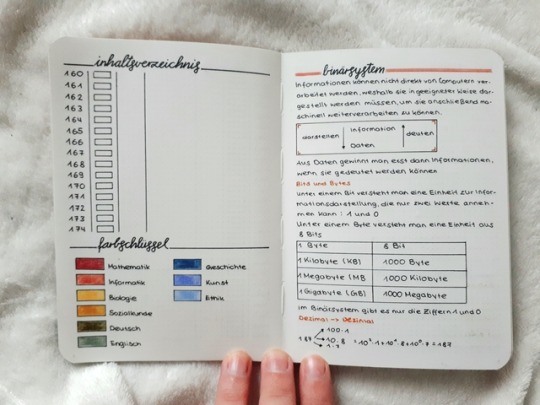 inhaltsverzeichnis
160
161
162
163
164
165
166
167
168
169
170
171
172
173
174
farbschlüssel
Mathematik
Informatik
Biologie
Sozialkunde
Deutsch
Englisch
Geschichte
Kunst
Ethik
binärsystem
Informationen können nicht direkt von Computern ver-
arbeitet werden, weshalb sie in geeigneter Weise dar-
gestellt werden müssen, um sie anschließend ma-
schinell weiterverarbeiten zu können.
darstellen Information deuten
Daten
Aus Daten gewinnt man erst dann Informationen,
wenn sie gedeutet werden können
Bits und Bytes
unter einem Bit versteht man eine Einheit zur Infor-
mationsdarstellung, die nur zwei Werte anneh-
men kann: 1 und 0
Unter einem Byte versteht man eine Einheit aus
8 Bits
1 Byte 8 Bit
1 Kilobyte (KB) 1000 Byte
1 Megabyte (MB 1000 Kilobyte
1 Gigabyte (GB) 1000 Megabyte
im Binärsystem gibt es nur die Ziffern 1 und 0
Dezimal → Dezimal
100·1
187 10·8
1·7